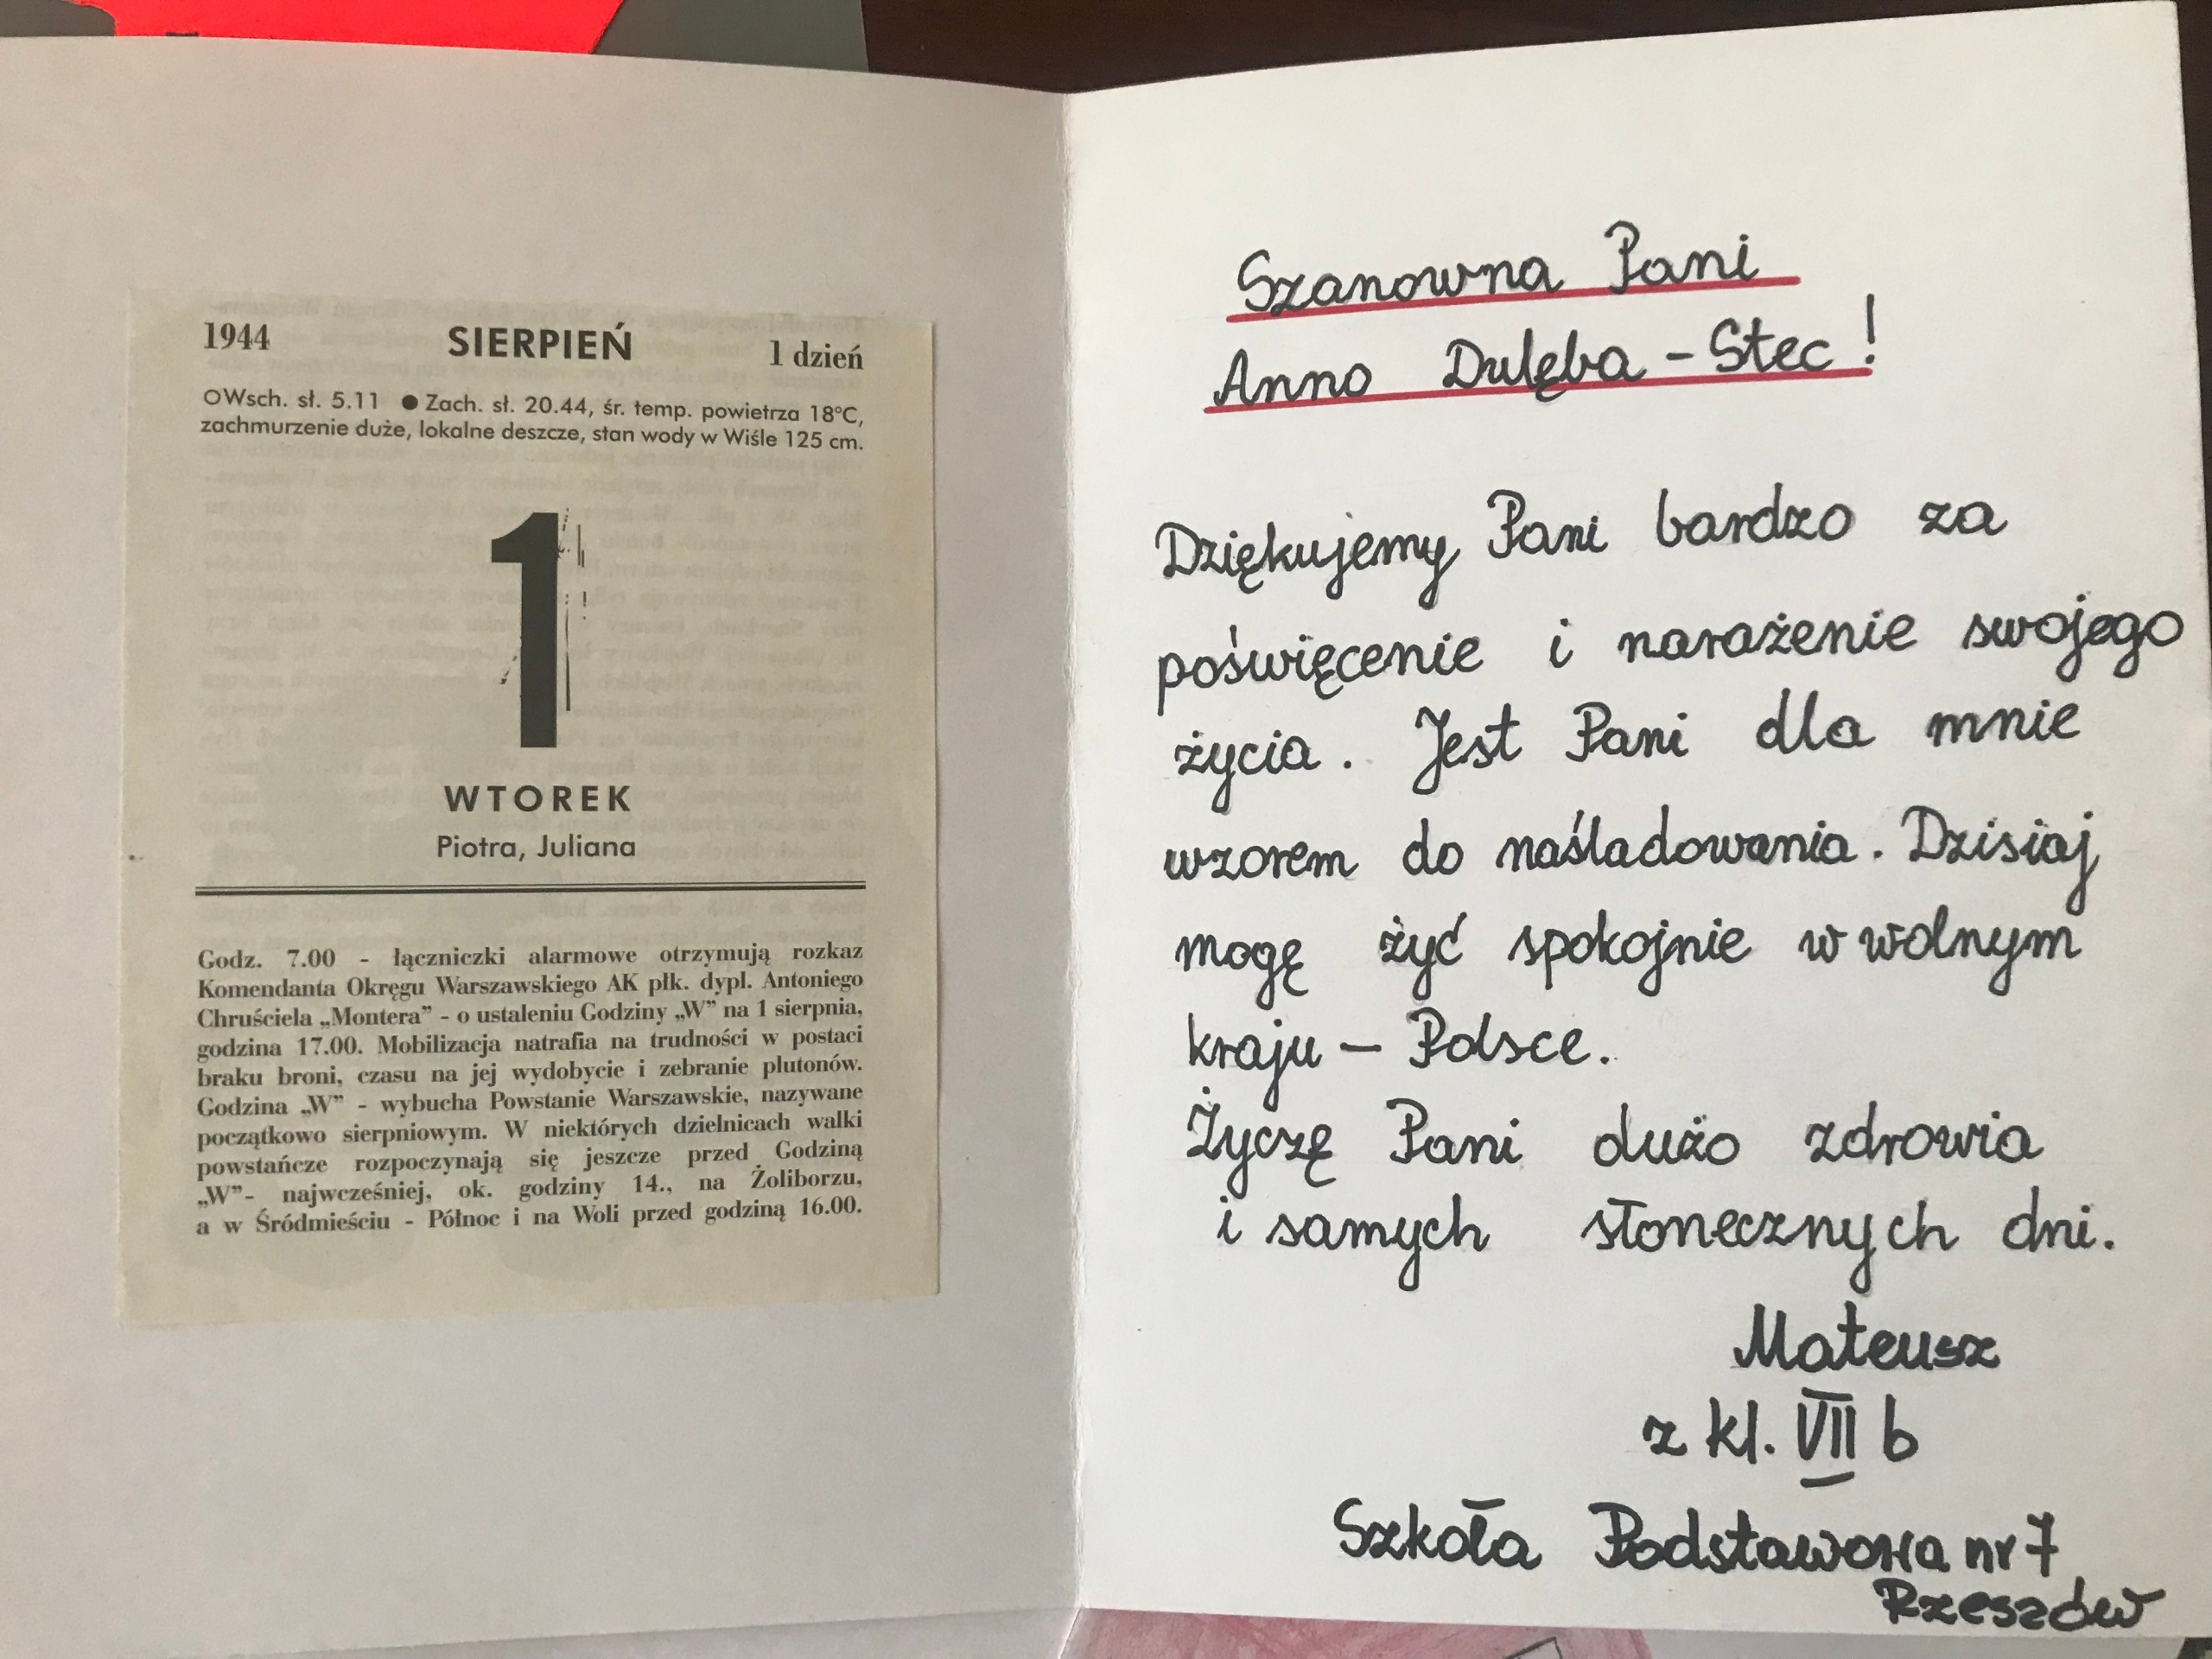 1944 SIERPIEŃ 1 dzień
Wsch. sł. 5.11 ● Zach. sł. 20.44, śr. temp. powietrza 18°C,
zachmurzenie duże, lokalne deszcze, stan wody w Wiśle 125 cm.
1
WTOREK
Piotra, Juliana
Godz. 7.00 - łączniczki alarmowe otrzymują rozkaz
Komendanta Okręgu Warszawskiego AK płk. dypl. Antoniego
Chruściela „Montera” - o ustaleniu Godziny „W” na 1 sierpnia,
godzina 17.00. Mobilizacja natrafia na trudności w postaci
braku broni, czasu na jej wydobycie i zebranie plutonów.
Godzina „W” - wybucha Powstanie Warszawskie, nazywane
początkowo sierpniowym. W niektórych dzielnicach walki
powstańcze rozpoczynają się jeszcze przed Godziną
„W”- najwcześniej, ok. godziny 14., na Żoliborzu,
a w Śródmieściu - Północ i na Woli przed godziną 16.00.
Szanowna Pani
Anno Dulęba - Stec!
Dziękujemy Pani bardzo za
poświęcenie i narażenie swojego
życia. Jest Pani dla mnie
wzorem do naśladowania. Dzisiaj
mogę żyć spokojnie w wolnym
kraju - Polsce.
Życzę Pani dużo zdrowia
i samych słonecznych dni.
Mateusz
z kl. VII b
Szkoła Podstawowa nr 7
Rzeszów